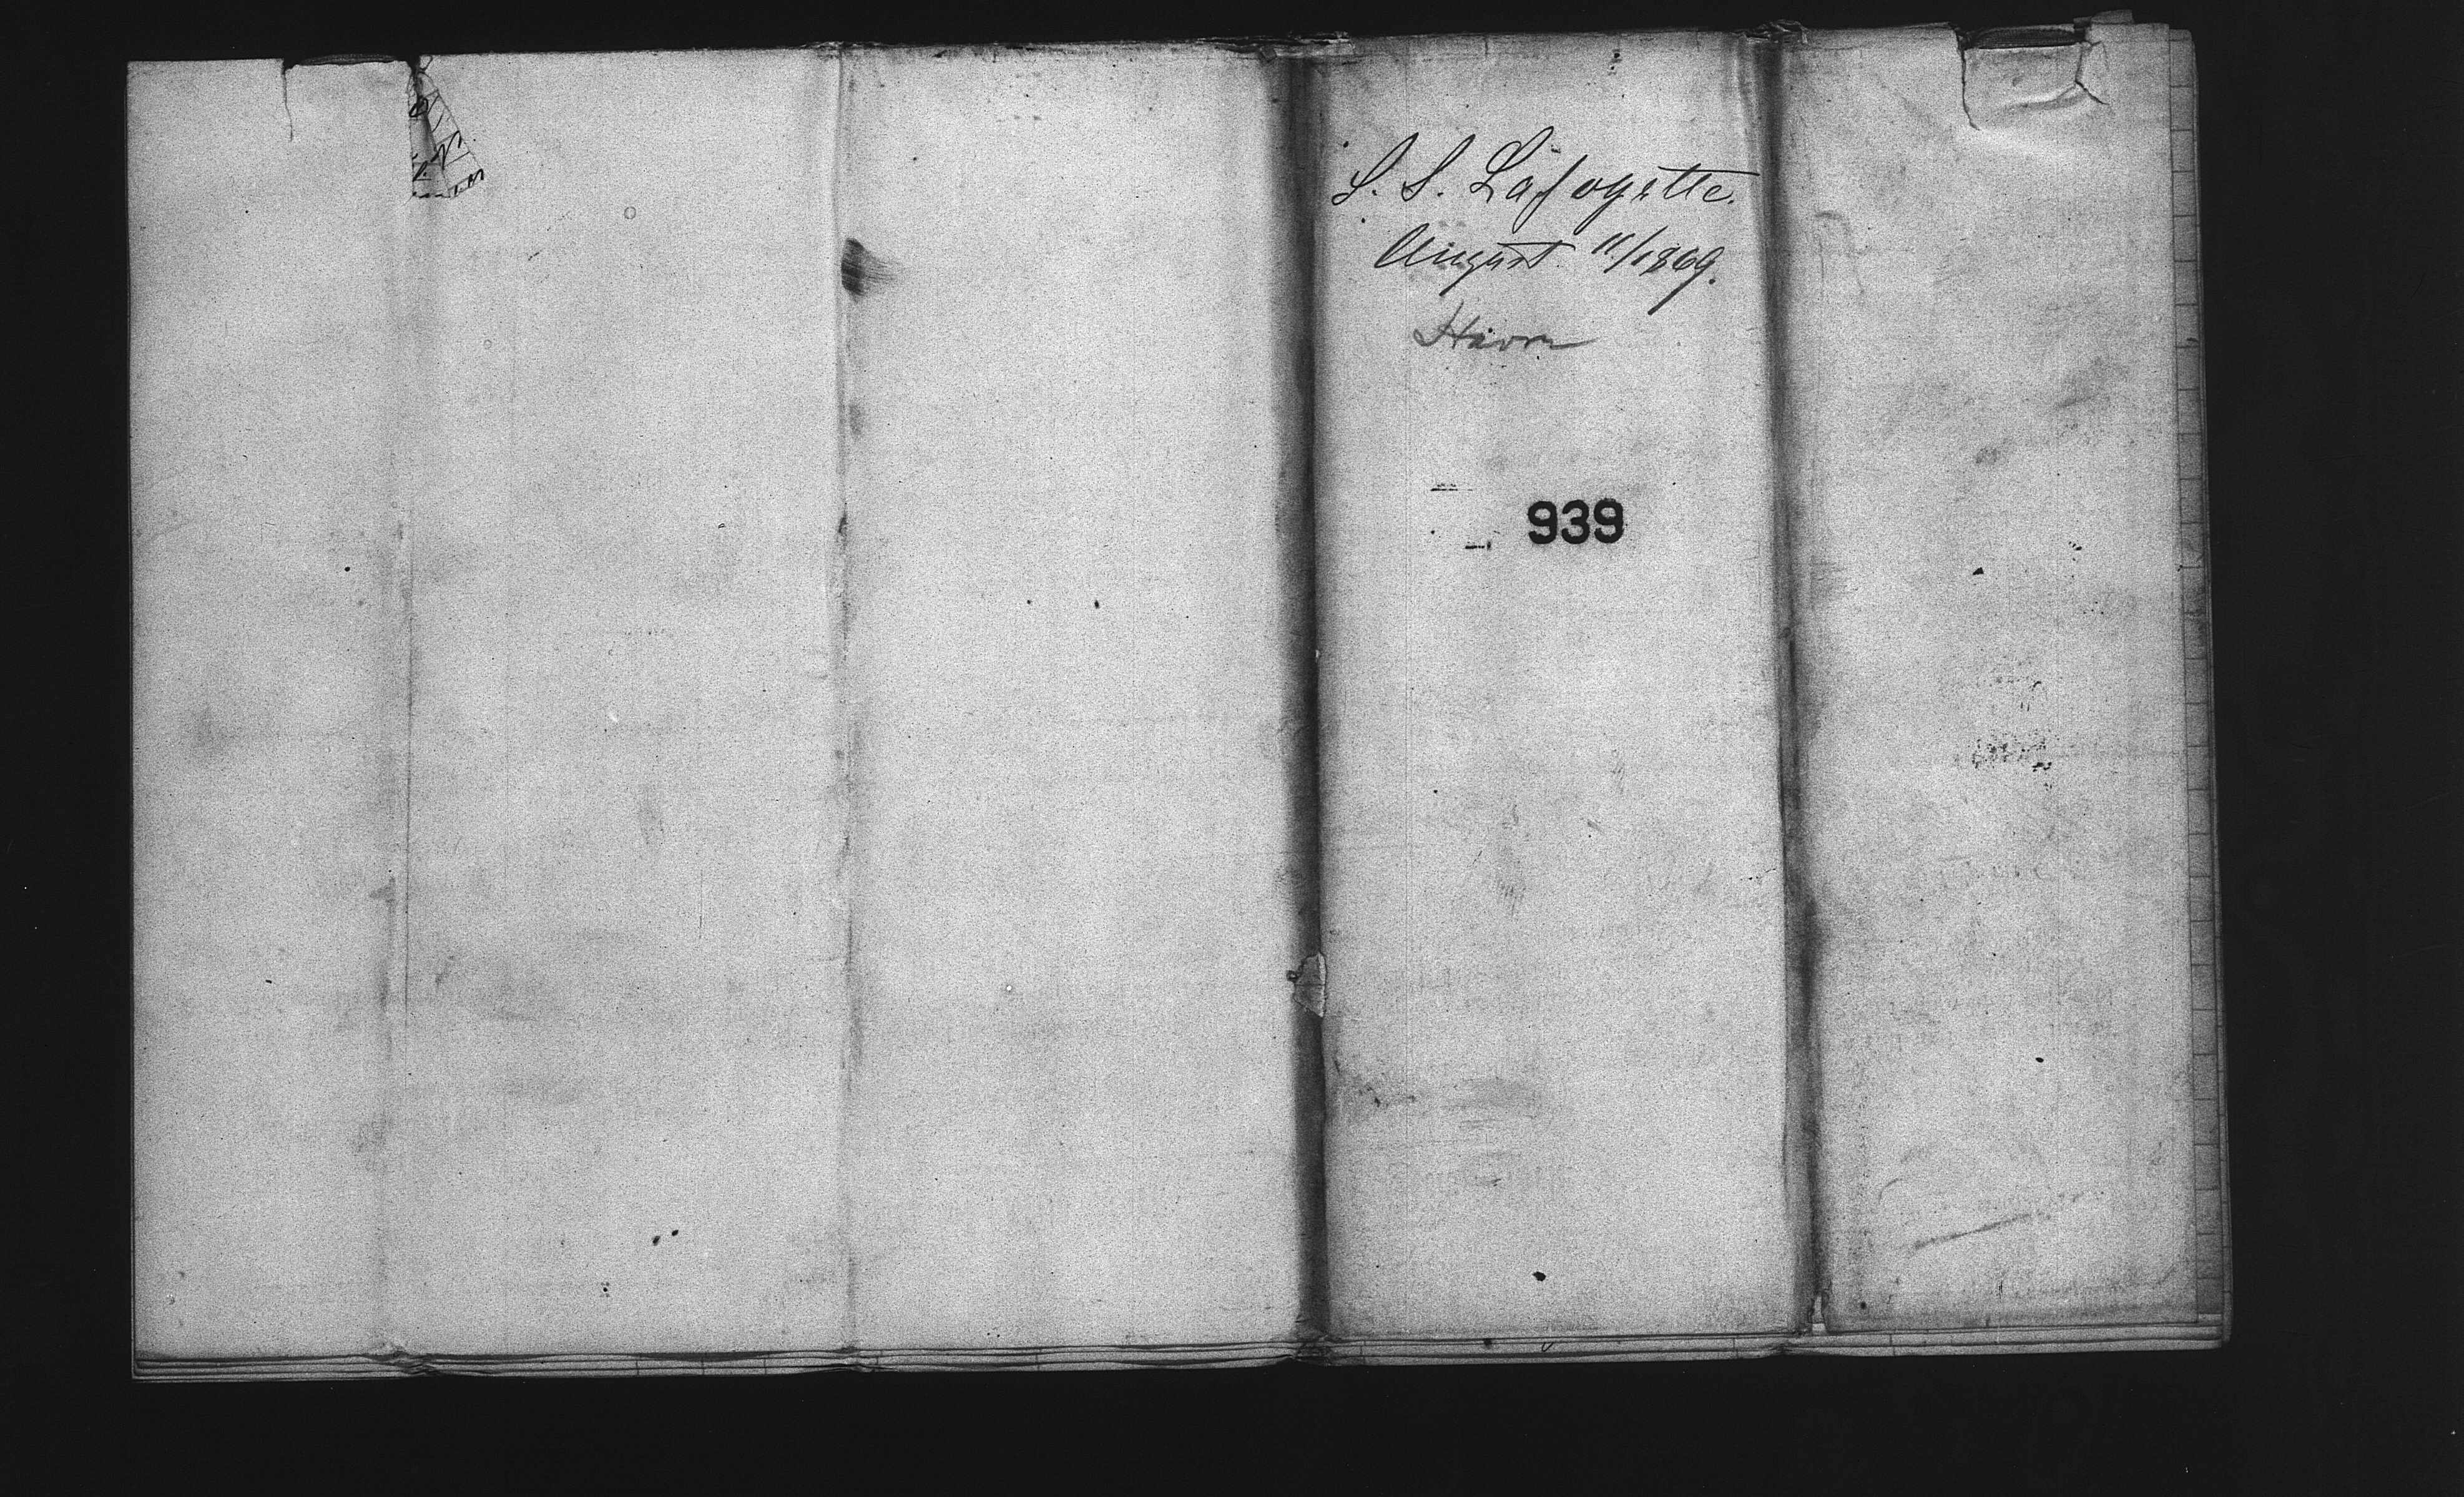 S. S. Lafayette.
August 11/1869.
Havre
939